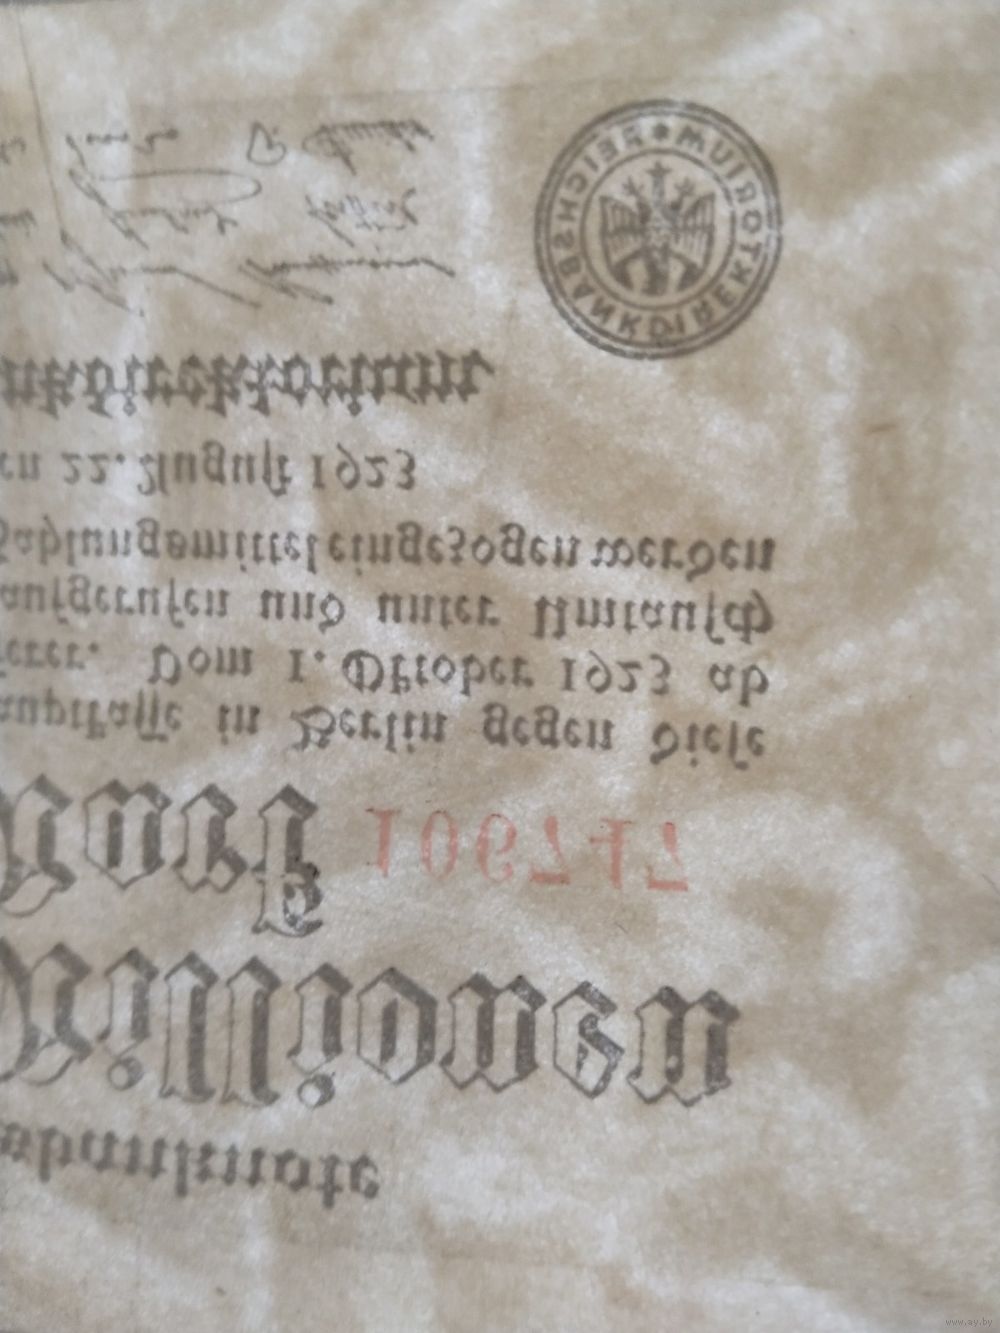 sbanknote
Millionen
Mark
auptkasse in Berlin gegen diese
erer. Vom 1. Oktober 1923 ab
aufgerufen und unter Umtausch
Zahlungsmittel eingezogen werden
en 22. August 1923
nkdirektorium
REICHSBANKDIREKTORIUM
www.ay.by